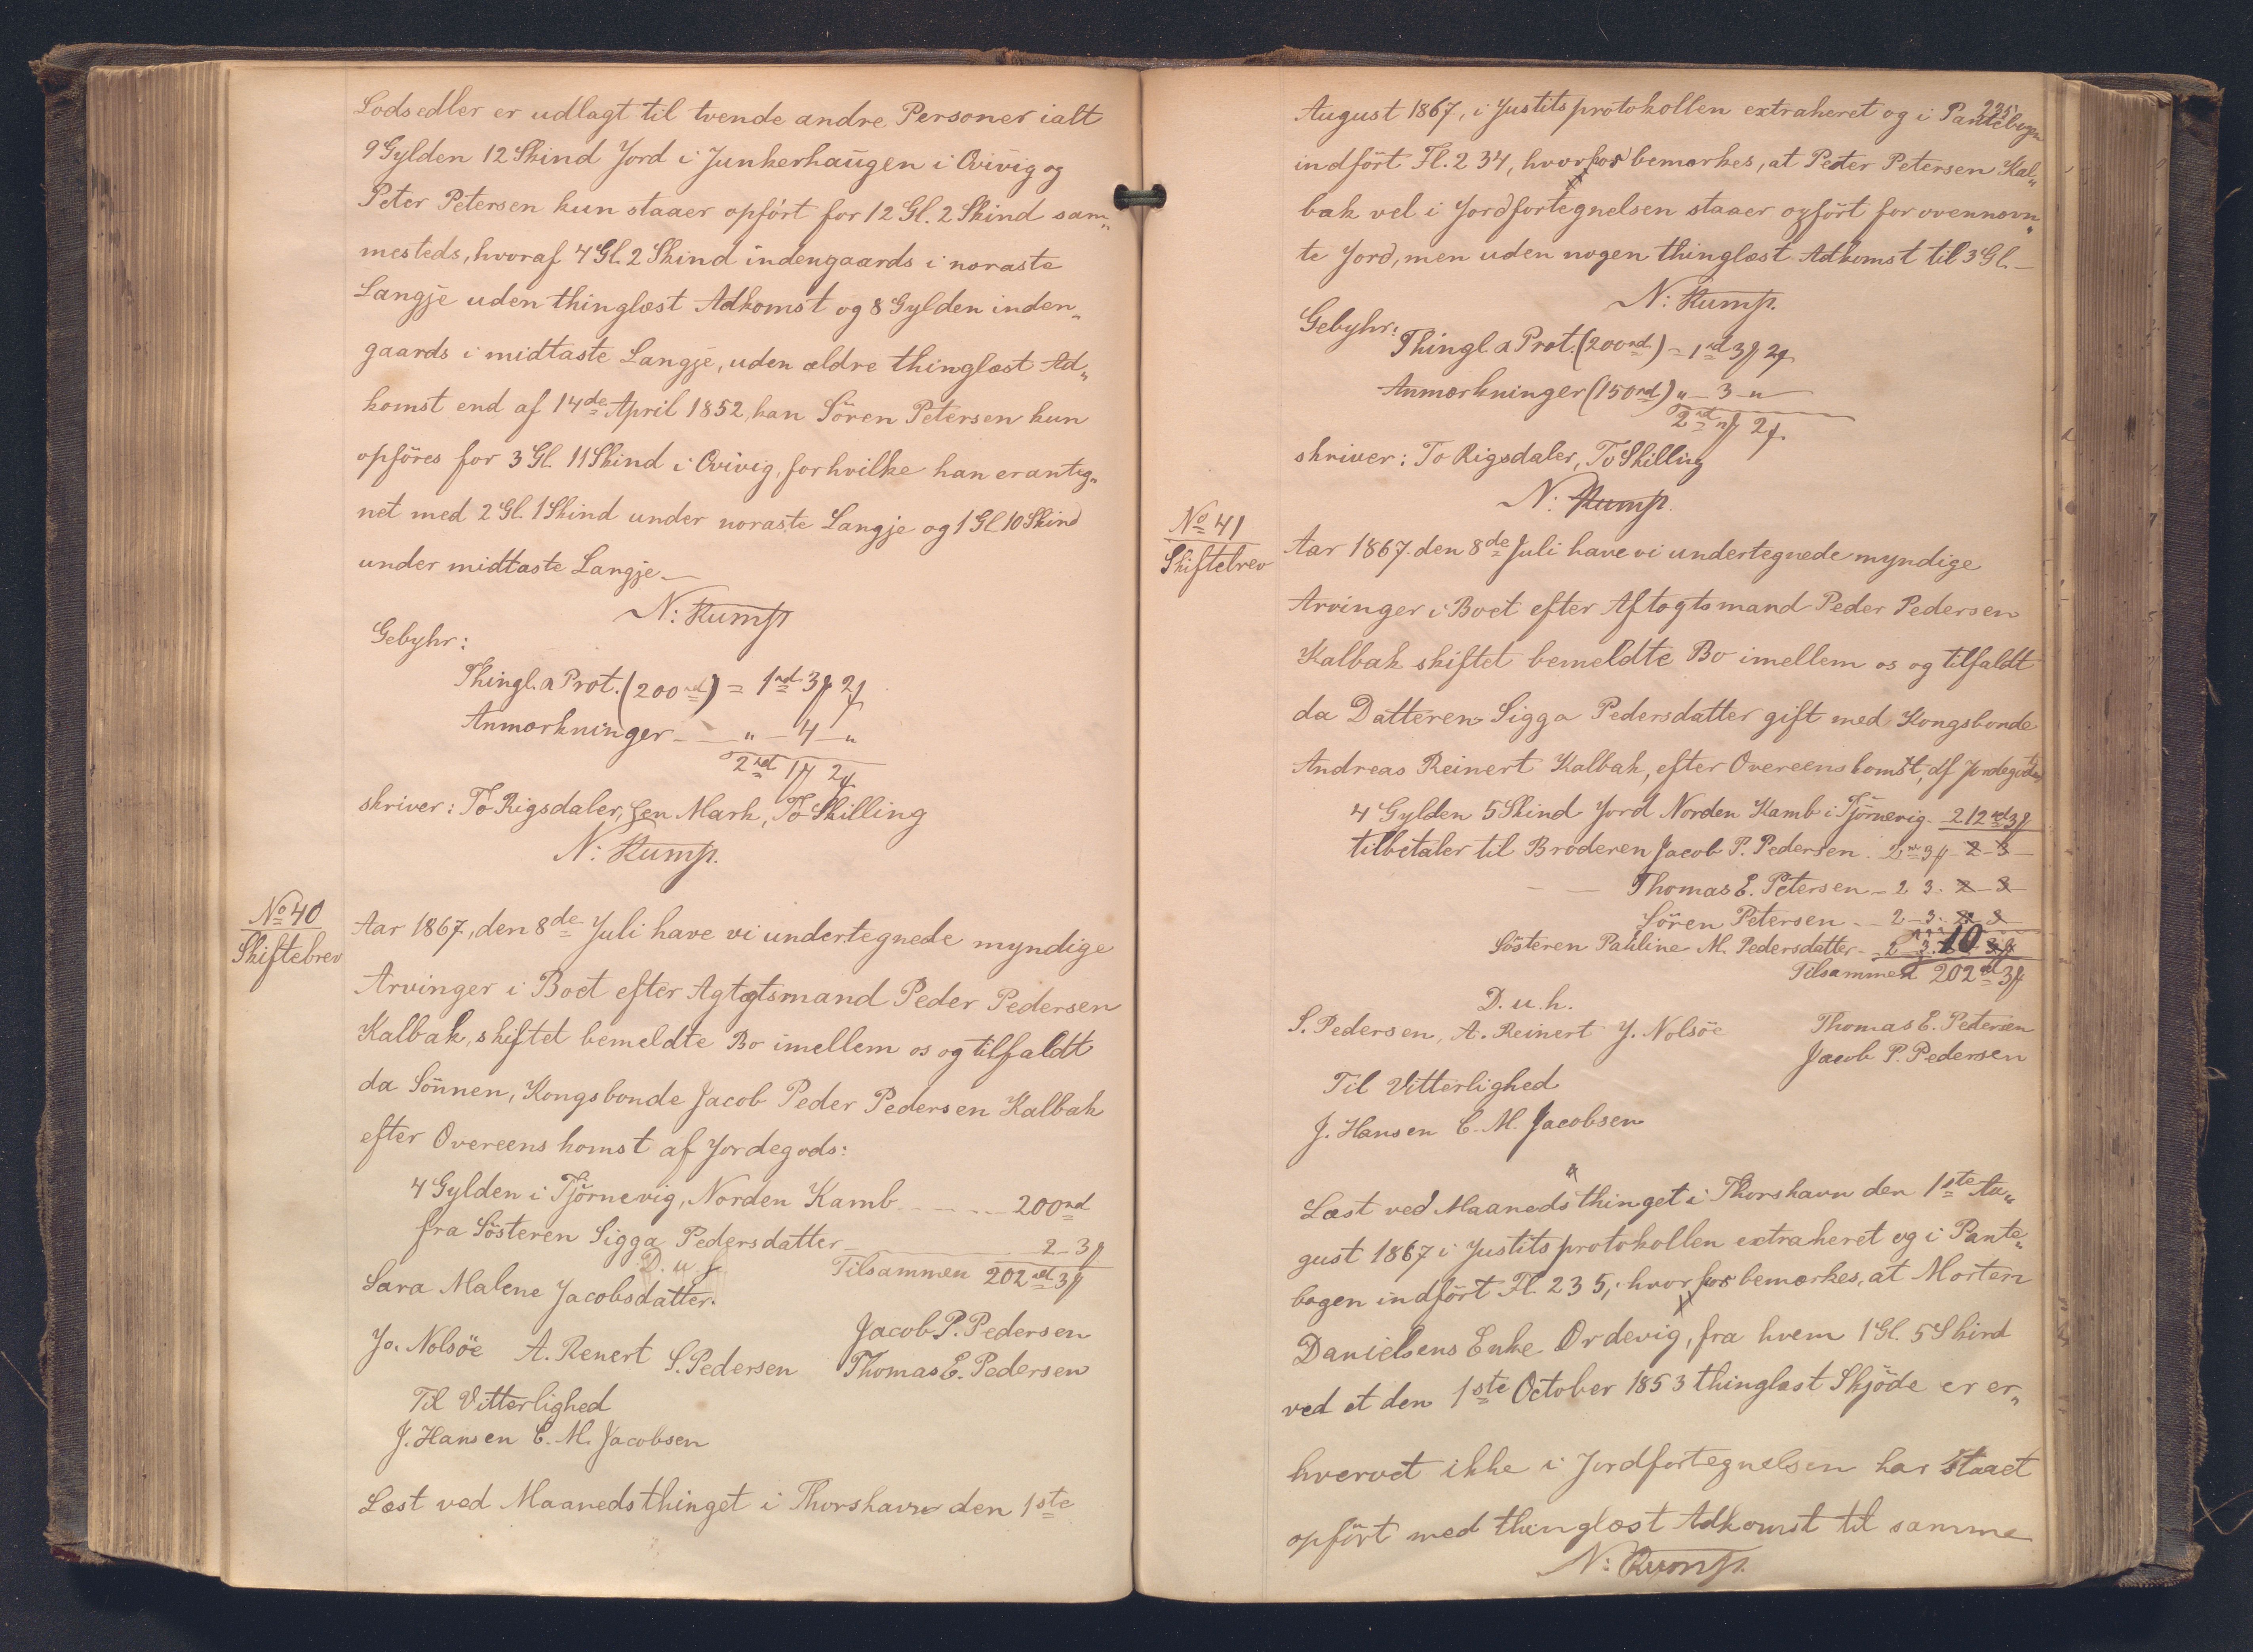 Lodsedler er udlagt til tvende andre Personer ialt
9 Gylden 12 Skind Jord i Junkerhaugen i Qvivig og
Peter Petersen kun staaer opført for 12 Gl. 2 Skind sam„
mesteds, hvoraf 4 Gl. 2 Skind indengaards i noraste
Langje uden thinglæst Adkomst og 8 Gylden inden„
gaards i midtaste Langje, uden ældre thinglæst Ad„
komst end af 14de April 1852, kan Sören Petersen kun
opföres for 3 Gl. 11 Skind i Qvivig, for hvilke han er anteg„
net med 2 Gl. 1 Skind under noraste Langje og 1 Gl 10 Skind
under midtaste Langje —
N: Rump
Gebyhr:
Thingl. a Prot. (200 rd) = 1 rd 3 ꝟ 2 ẞ
Anmærkninger — " — 4 — "
2 rd 1 ꝟ 2 ẞ
skriver: To Rigsdaler, Een Mark, To Skilling
N: Rump.
No 40
Skiftebrev
Aar 1867, den 8de Juli have vi undertegnede myndige
Arvinger i Boet efter Agtøgtsmand Peder Pedersen
Kalbak, skiftet bemeldte Bo imellem os og tilfaldt
da Sönnen, Kongsbonde Jacob Peder Pedersen Kalbak
efter Overeenskomst af Jordegods:
4 Gylden i Tjörnevig, Norden Kamb — 200 rd
fra Sösteren Sigga Pedersdatter — 2 – 3 ꝟ
D. u. s Tilsammen 202 rd 3 ꝟ
Sara Malene Jacobsdatter.
Jacob P. Pedersen
Jo. Nolsöe A. Renert S. Pedersen Thomas E. Pedersen
Til Vitterlighed
J. Hansen C. M. Jacobsen
Læst ved Maanedsthinget i Thorshavn den 1ste
235
August 1867, i Justitsprotokollen extraheret og i Pantebogen
indfört Fl. 234, hvorfor bemærkes, at Peter Petersen Kal„
bak vel i Jordfortegnelsen staaer opfört for ovennævn„
te Jord, men uden nogen thinglæst Adkomst til 3 Gl. —
N: Rump.
Gebyhr:
Thingl a Prot. (200 rd) = 1 rd 3 ꝟ 2 ẞ
Anmærkninger (150 rd) " — 3 — "
2 rd " ꝟ 2 ẞ
skriver: To Rigsdaler, To Skilling
N: Rump.
No 41
Skiftebrev
Aar 1867. den 8de Juli have vi undertegnede myndige
Arvinger i Boet efter Aftøgtsmand Peder Pedersen
Kalbak skiftet bemeldte Bo imellem os og tilfaldt
da Datteren Sigga Pedersdatter gift med Kongsbonde
Andreas Reinert Kalbak, efter Overeenskomst, af Jordegodset
4 Gylden 5 Skind Jord Norden Kamb i Tjörnevig 212 rd 3 ꝟ
tilbetaler til Broderen Jacob P. Pedersen. 2 rd 3 ꝟ 2 – 3
— — Thomas E. Petersen – 2 3. 2 – 3
Sören Petersen – 2 – 3. 2 3
Sösteren Pauline M. Pedersdatter – 2 3. 10
Tilsammen 202 rd 3 ꝟ
D. u. h.
S. Pedersen, A. Reinert J. Nolsöe Thomas E. Petersen
Jacob P. Pedersen
Til Vitterlighed
J. Hansen C. M. Jacobsen
Læst ved Maanedsthinget i Thorshavn den 1ste Au„
gust 1867 i Justitsprotokollen extraheret og i Pante„
bogen indfört Fl. 235, hvorfor bemærkes, at Morten
Danielsens Enke Ordevig, fra hvem 1 Gl. 5 Skind
ved et den 1ste October 1853 thinglæst Skjöde er er„
hvervet ikke i Jordfortegnelsen har staaet
opfört med thinglæst Adkomst til samme
N: Rump.